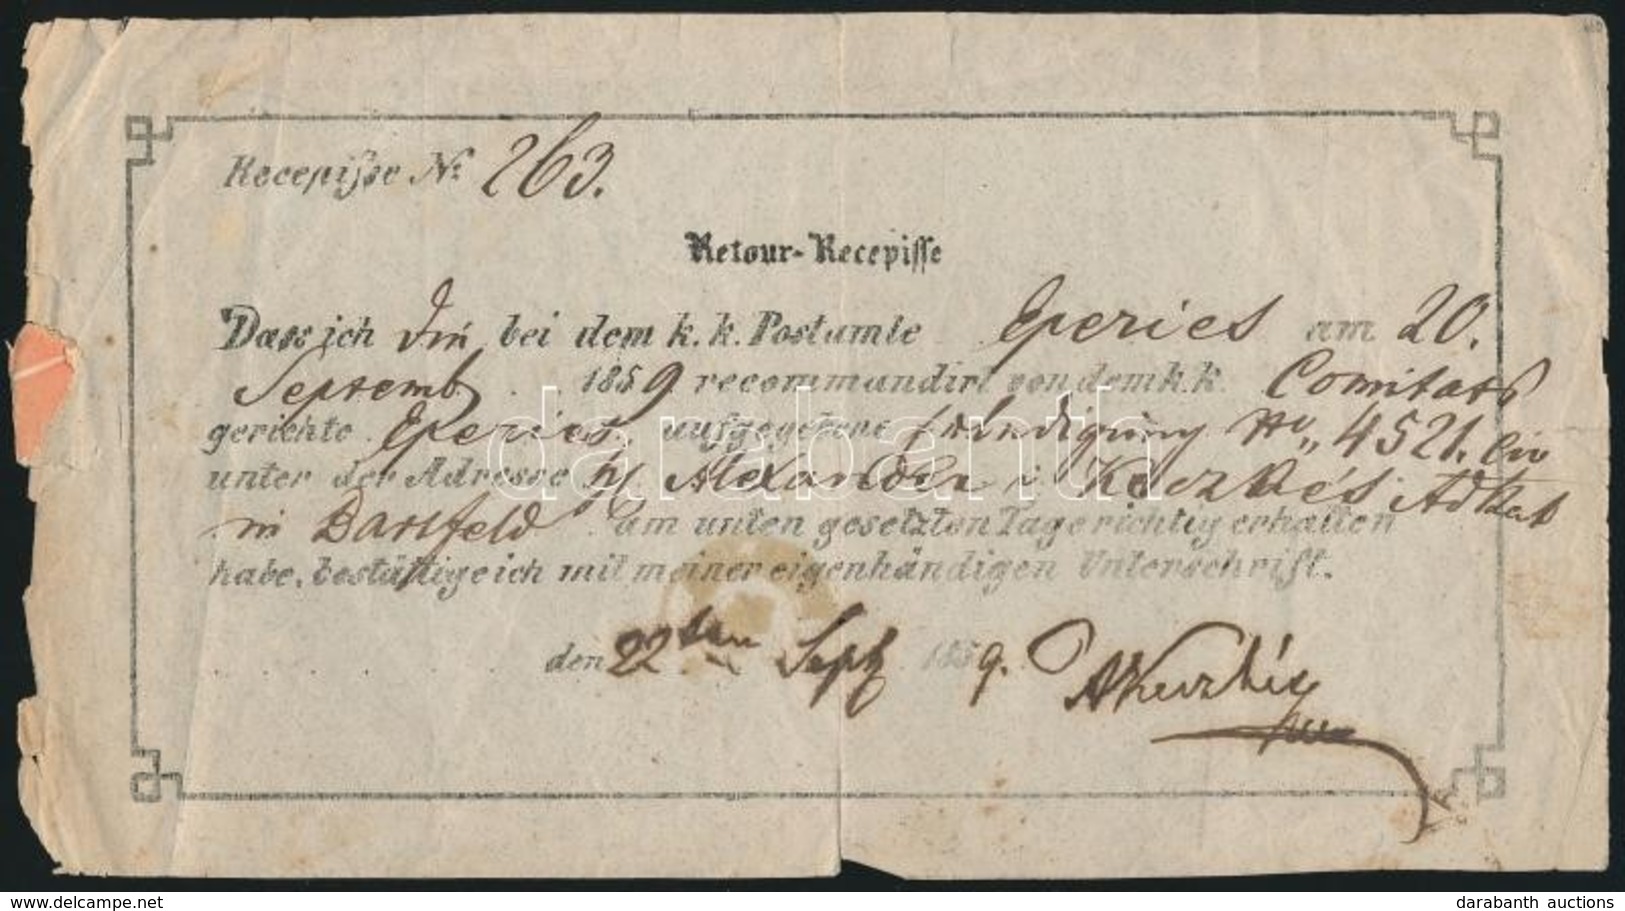 Recepisse Nr. 263.
Retour-Recepisse
Dass ich bei dem k. k. Postamte Eperies am 20.
Septemb 1859 recommandirt von dem k. k. Comitats
gerichte Eperies aufgegebene No 4521. Civ
unter der Adresse Alexander
in Bartfeld am unten gesetzten Tage richtig erhalten
habe, bestättige ich mit meiner eigenhändigen Unterschrift.
den 22ten Sept 1859.
darabanth
delcampe.net
darabanth auctions